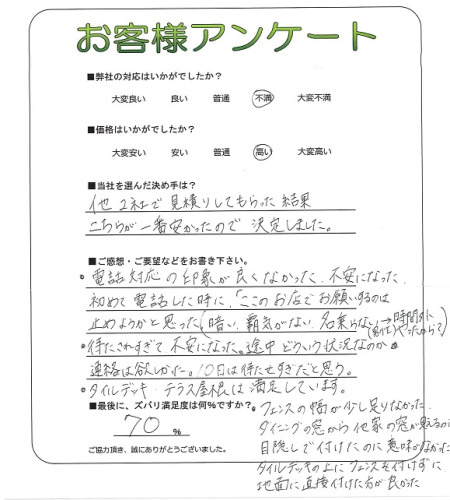 お客様アンケート
■弊社の対応はいかがでしたか?
大変良い 良い 普通 不満 大変不満
■価格はいかがでしたか?
大変安い 安い 普通 高い 大変高い
■当社を選んだ決め手は?
他2社で見積りしてもらった結果
こちらが一番安かったので決定しました。
■ご感想・ご要望などをお書き下さい。
・電話対応の印象が良くなかった。不安になった。
初めて電話した時に、「ここのお店でお願いするのは
止めようかと思った(暗い、覇気がない、名乗らない→時間外
やったからで)
・待たされすぎて不安になった。途中どういう状況なのか
連絡は欲しかった。10日は待たせすぎだと思う。
・タイルデッキ・テラス屋根は満足しています。
■最後に、ズバリ満足度は何%ですか?
・フェンスの幅が少し足りなかった。
70 %
ダイニングの窓から他家の窓が見えるのに
目隠しで付けたのに意味がなかった
ご協力頂き、誠にありがとうございました。
タイルデッキの上にフェンスを付けずに
地面に直接付けた方が良かった